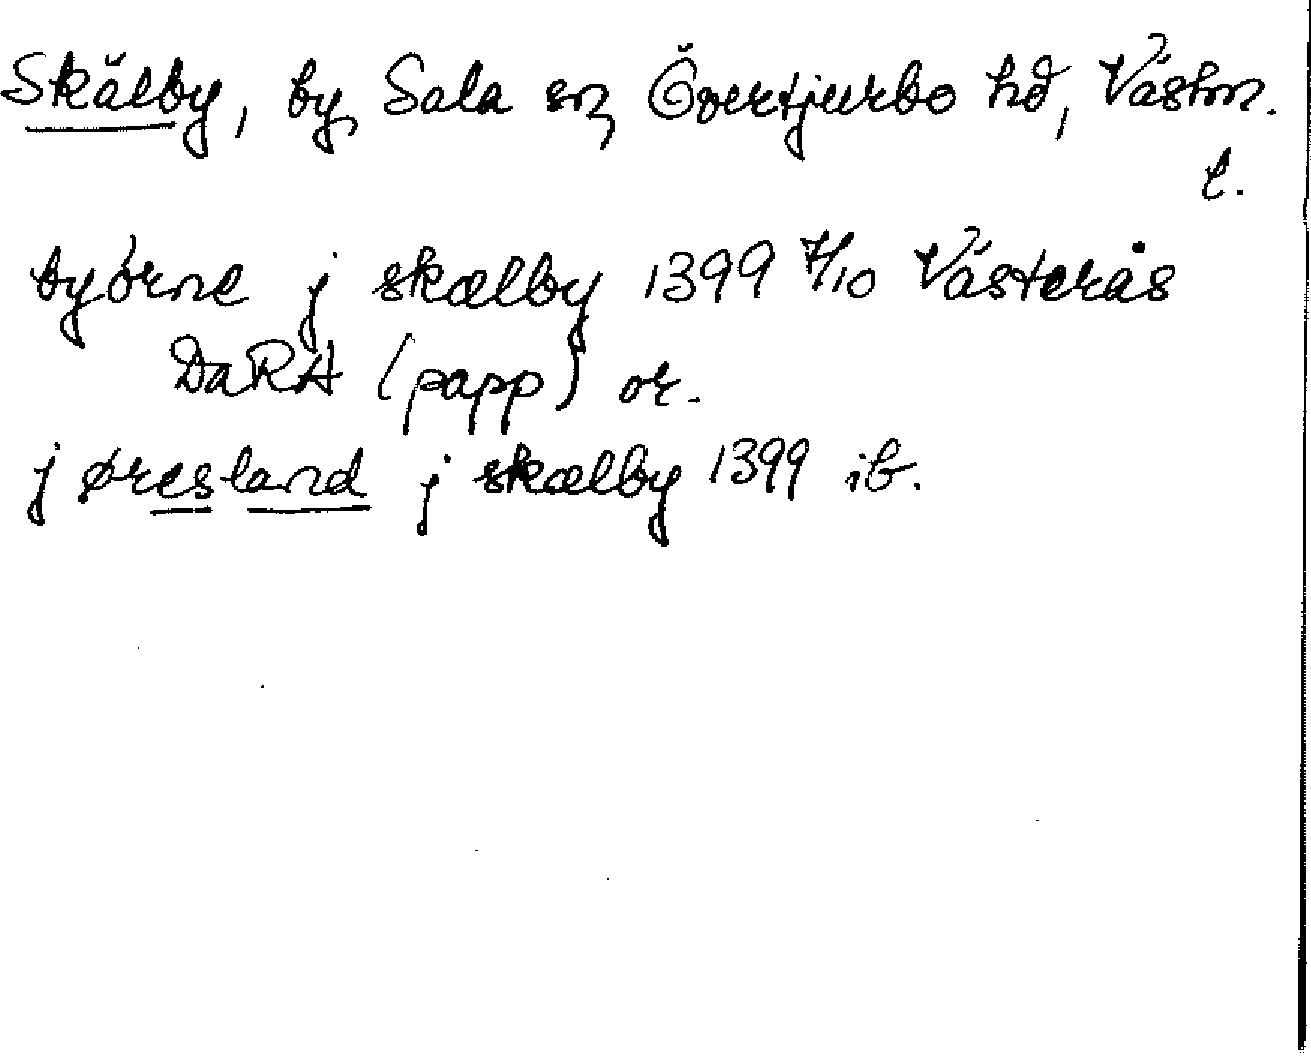 Skälby, by, Sala sn, Övertjurbo hd, Västm.
l.
byörne j skælby 1399 7/10 Västerås
DaRA (papp) or.
j øresland j skælby 1399 ib.